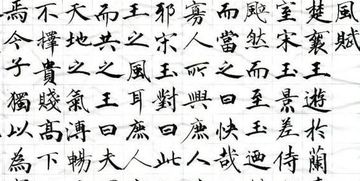 風賦
楚襄王遊於蘭
宮宋玉景差侍
颯然而至王迺
而當之曰快哉
寡人所與庶人
邪宋玉對曰此
王之風耳庶人
而共之王曰夫
天地之氣溥暢
不擇貴賤高下
焉今子獨以為